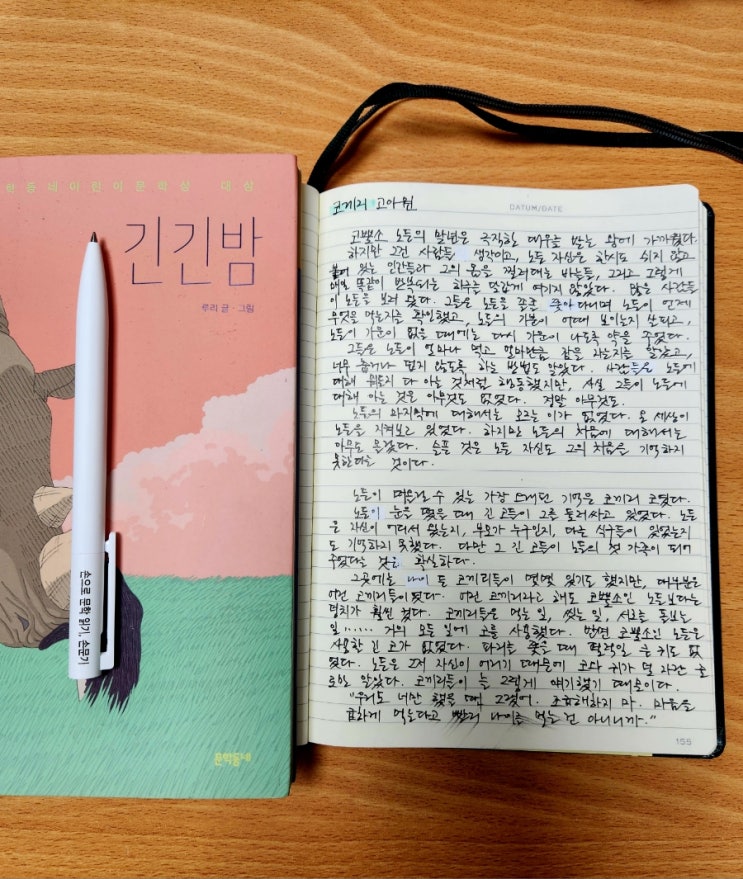 학동네어린이문학상 대상
긴긴밤
루리 글·그림
손으로 문학 읽기, 손문기
문학동네
코끼리 고아원
DATUM/DATE
코뿔소 노든의 말년은 극직한 대우를 받는 왕에 가까웠다.
하지만 그건 사람들 생각이고, 노든 자신은 한시도 쉬지 않고
붙어 있는 인간들과 그의 몸을 찔러대는 바늘들, 그리고 그렇게
매일 똑같이 반복되는 하루는 달갑게 여기지 않았다. 많은 사람들
이 노든을 보러 왔다. 그들은 노든을 졸졸 쫓아다니며 노든이 언제
무엇을 먹는지를 확인했고, 노든의 기분이 어때 보이는지 살피고,
노든이 기운이 없을 때에는 다시 기운이 나도록 약을 주었다.
그들은 노든이 얼마나 먹고 얼마만큼 잠을 자는지를 알았고,
너무 춥거나 덥지 않도록 하는 방법도 알았다. 사람들은 노든에
대해 뭐든지 다 아는 것처럼 행동했지만, 사실 그들이 노든에
대해 아는 것은 아무것도 없었다. 정말 아무것도.
노든의 마지막에 대해서는 모르는 이가 없었다. 온 세상이
노든을 지켜보고 있었다. 하지만 노든의 처음에 대해서는
아무도 몰랐다. 슬픈 것은 노든 자신도 그의 처음을 기억하지
못한다는 것이다.
노든이 떠올릴 수 있는 가장 오래된 기억은 코끼리 코였다.
노든이 눈을 떴을 때 긴 코들이 그를 둘러싸고 있었다. 노든
은 자신이 어디서 왔는지, 부모가 누구인지, 다른 식구들이 있었는지
도 기억하지 못했다. 다만 그 긴 코들이 노든의 첫 가족이 되어
주었다는 것은 확실하다.
그곳에는 나이 든 코끼리들이 몇몇 있기도 했지만, 대부분은
어린 코끼리들이었다. 어린 코끼리라고 해도 코뿔소인 노든보다는
덩치가 훨씬 컸다. 코끼리들은 먹는 일, 씻는 일, 서로를 돌보는
일…… 거의 모든 일에 코를 사용했다. 반면 코뿔소인 노든은
사용할 긴 코가 없었다. 파리를 쫓을 때 펄럭일 큰 귀도 없
었다. 노든은 그저 자신이 어리기 때문에 코와 귀가 덜 자란 줄
로만 알았다. 코끼리들이 늘 그렇게 얘기했기 때문이다.
"우리도 너만 했을 때 그랬어. 조급해하지 마. 마음을
급하게 먹는다고 빨리 나이를 먹는 건 아니니까."
155